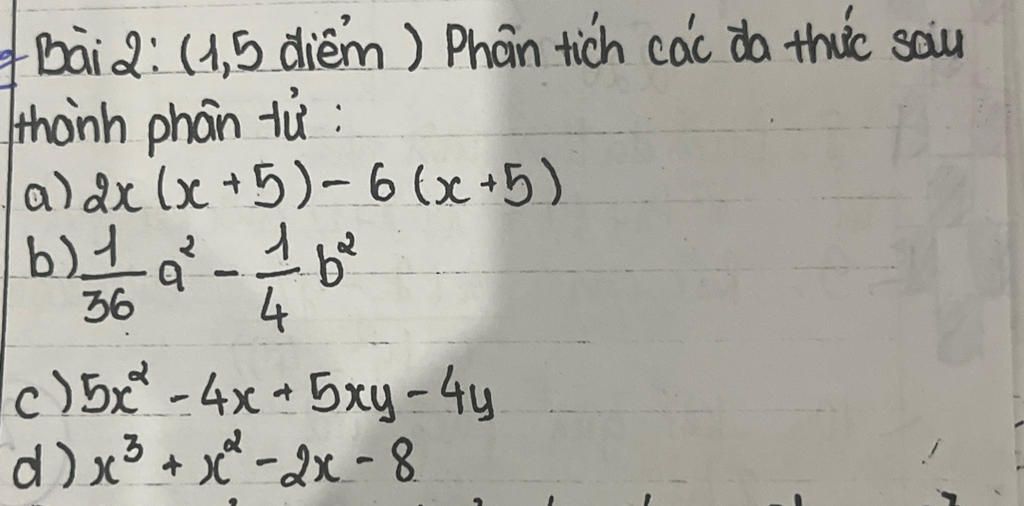 Bài 2: (1,5 điểm) Phân tích các đa thức sau
thành phân tử:
a) 2x(x+5) - 6(x+5)
b) \frac{1}{36} a² - \frac{1}{4} b²
c) 5x² - 4x + 5xy - 4y
d) x³ + x² - 2x - 8